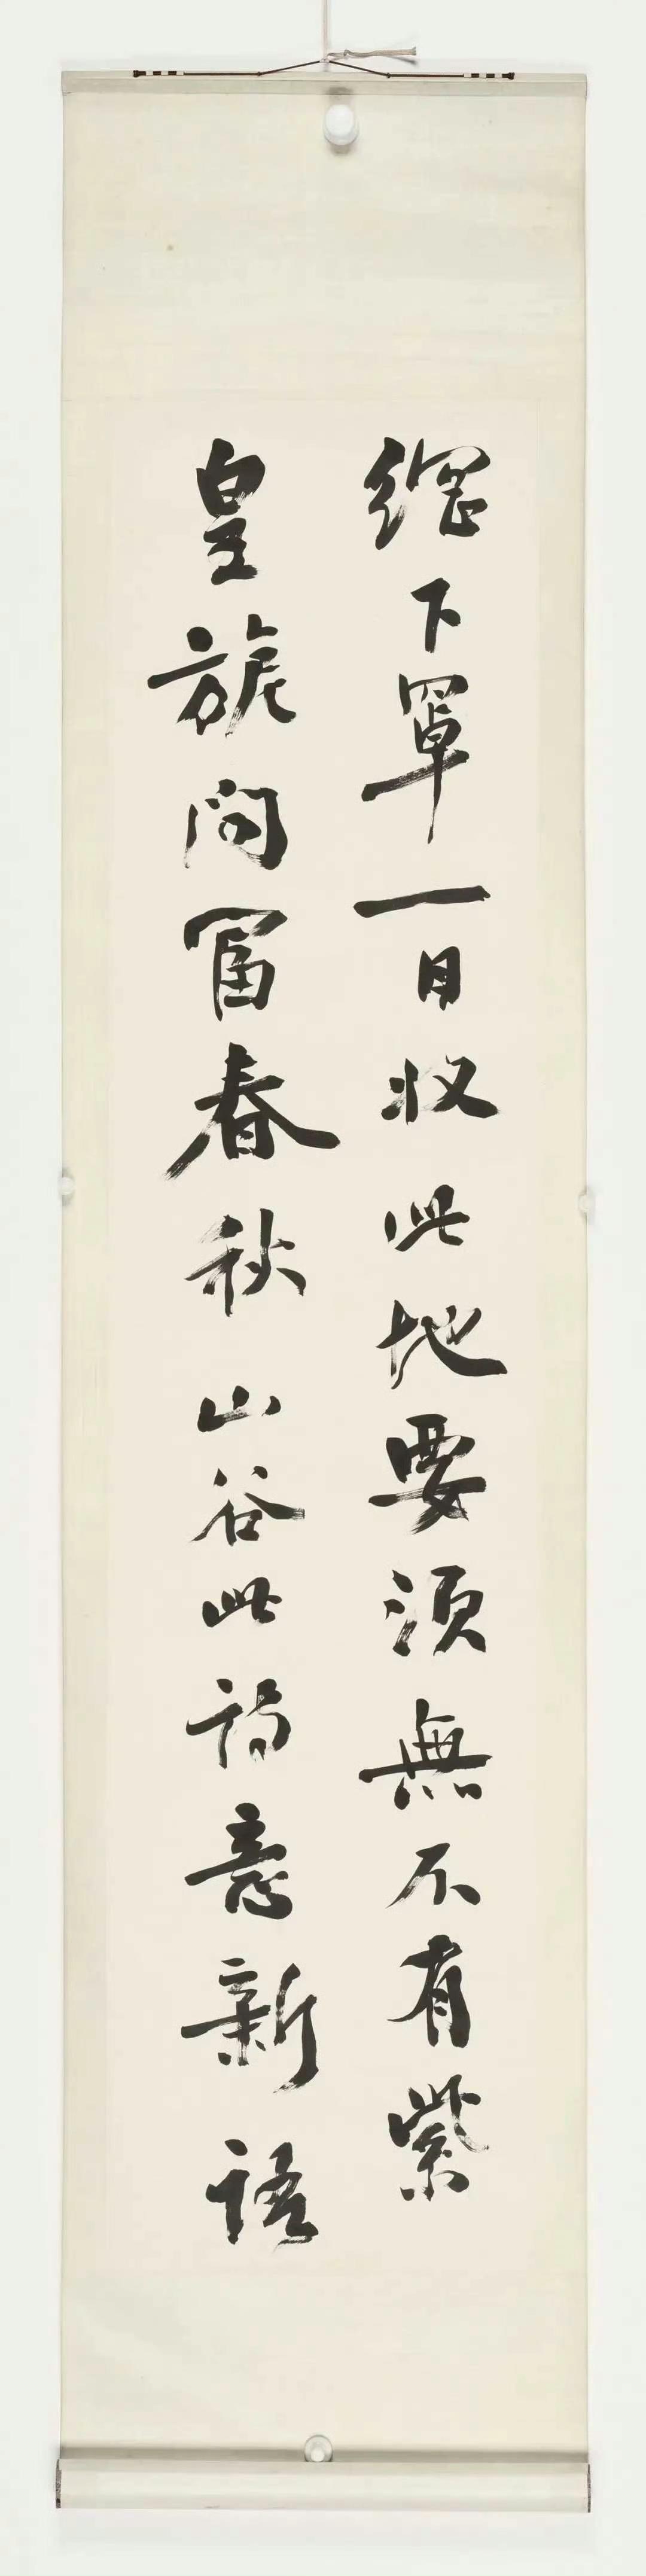 網下罩一日收此地要須無不有紫
皇旅問冨春秋山谷此詩意新語